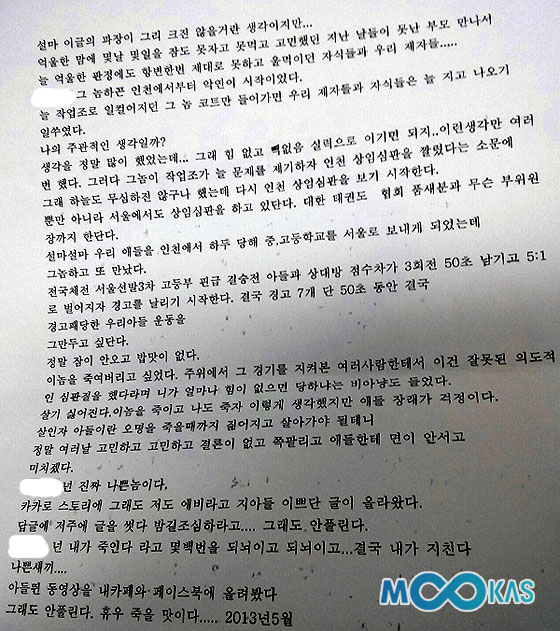 설마 이글의 파장이 그리 크진 않을거란 생각이지만...
억울한 맘에 몇날 몇일을 잠도 못자고 못먹고 고민했던 지난 날들이 못난 부모 만나서
늘 억울한 판정에도 항변한번 제대로 못하고 울먹이던 자식들과 우리 제자들.....
그 놈하곤 인천에서부터 악연이 시작이었다.
늘 작업조로 일컬어지던 그 놈 코트만 들어가면 우리 제자들과 자식들은 늘 지고 나오기
일쑤였다.
나의 주관적인 생각일까?
생각을 정말 많이 했었는데... 그래 힘 없고 빽없음 실력으로 이기면 되지..이런생각만 여러
번 했다. 그러다 그놈이 작업조가 늘 문제를 제기하자 인천 상임심판을 짤렸다는 소문에
그래 하늘도 무심하진 않구나 했는데 다시 인천 상임심판을 보기 시작한다.
뿐만 아니라 서울에서도 상임심판을 하고 있단다. 대한 태권도 협회 품새분과 무슨 부위원
장까지 한단다.
설마설마 우리 애들을 인천에서 하두 당해 중,고등학교를 서울로 보내게 되었는데
그놈하고 또 만났다.
전국체전 서울선발3차 고등부 핀급 결승전 아들과 상대방 점수차가 3회전 50초 남기고 5:1
로 벌어지자 경고를 날리기 시작한다. 결국 경고 7개 단 50초 동안 결국
경고패당한 우리아들 운동을
그만두고 싶단다.
정말 잠이 안오고 밥맛이 없다.
이놈을 죽여버리고 싶었다. 주위에서 그 경기를 지켜본 여러사람한테서 이건 잘못된 의도적
인 심판질을 했다라며 니가 얼마나 힘이 없으면 당하냐는 비아냥도 들었다.
살기 싫어진다.이놈을 죽이고 나도 죽자 이렇게 생각했지만 애들 장래가 걱정이다.
살인자 아들이란 오명을 죽을때까지 짊어지고 살아가야 될테니
정말 여러날 고민하고 고민하고 결론이 없고 쪽팔리고 애들한테 면이 안서고
미치겠다.
년 진짜 나쁜놈이다.
카카로 스토리에 그래도 저도 애비라고 지아들 이쁘단 글이 올라왔다.
답글에 저주에 글을 썻다 밤길조심하라고.... 그래도 안풀린다.
년 내가 죽인다 라고 몇백번을 되뇌이고 되뇌이고...결국 내가 지친다
나쁜새끼....
아들뛴 동영상을 내카페와 페이스북에 올려봤다
그래도 안풀린다. 휴우 죽을 맛이다..... 2013년5월
MOOKAS